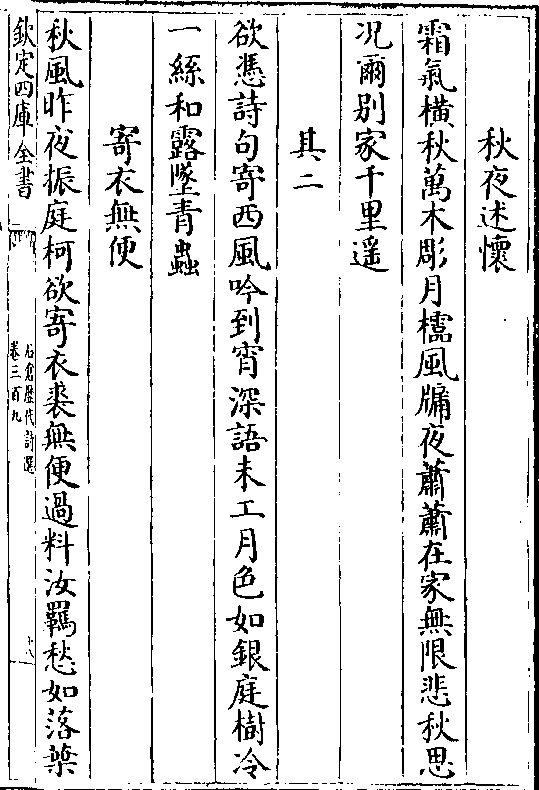 秋夜述懷
霜氣橫秋萬木彫月櫺風牖夜蕭蕭在家無限悲秋思
况爾别家千里遥
其二
欲憑詩句寄西風吟到宵深語未工月色如銀庭樹冷
一絲和露墜青蟲
寄衣無便
秋風昨夜振庭柯欲寄衣裘無便過料汝羈愁如落葉
欽定四庫全書
石倉歷代詩選
卷三百九
十八